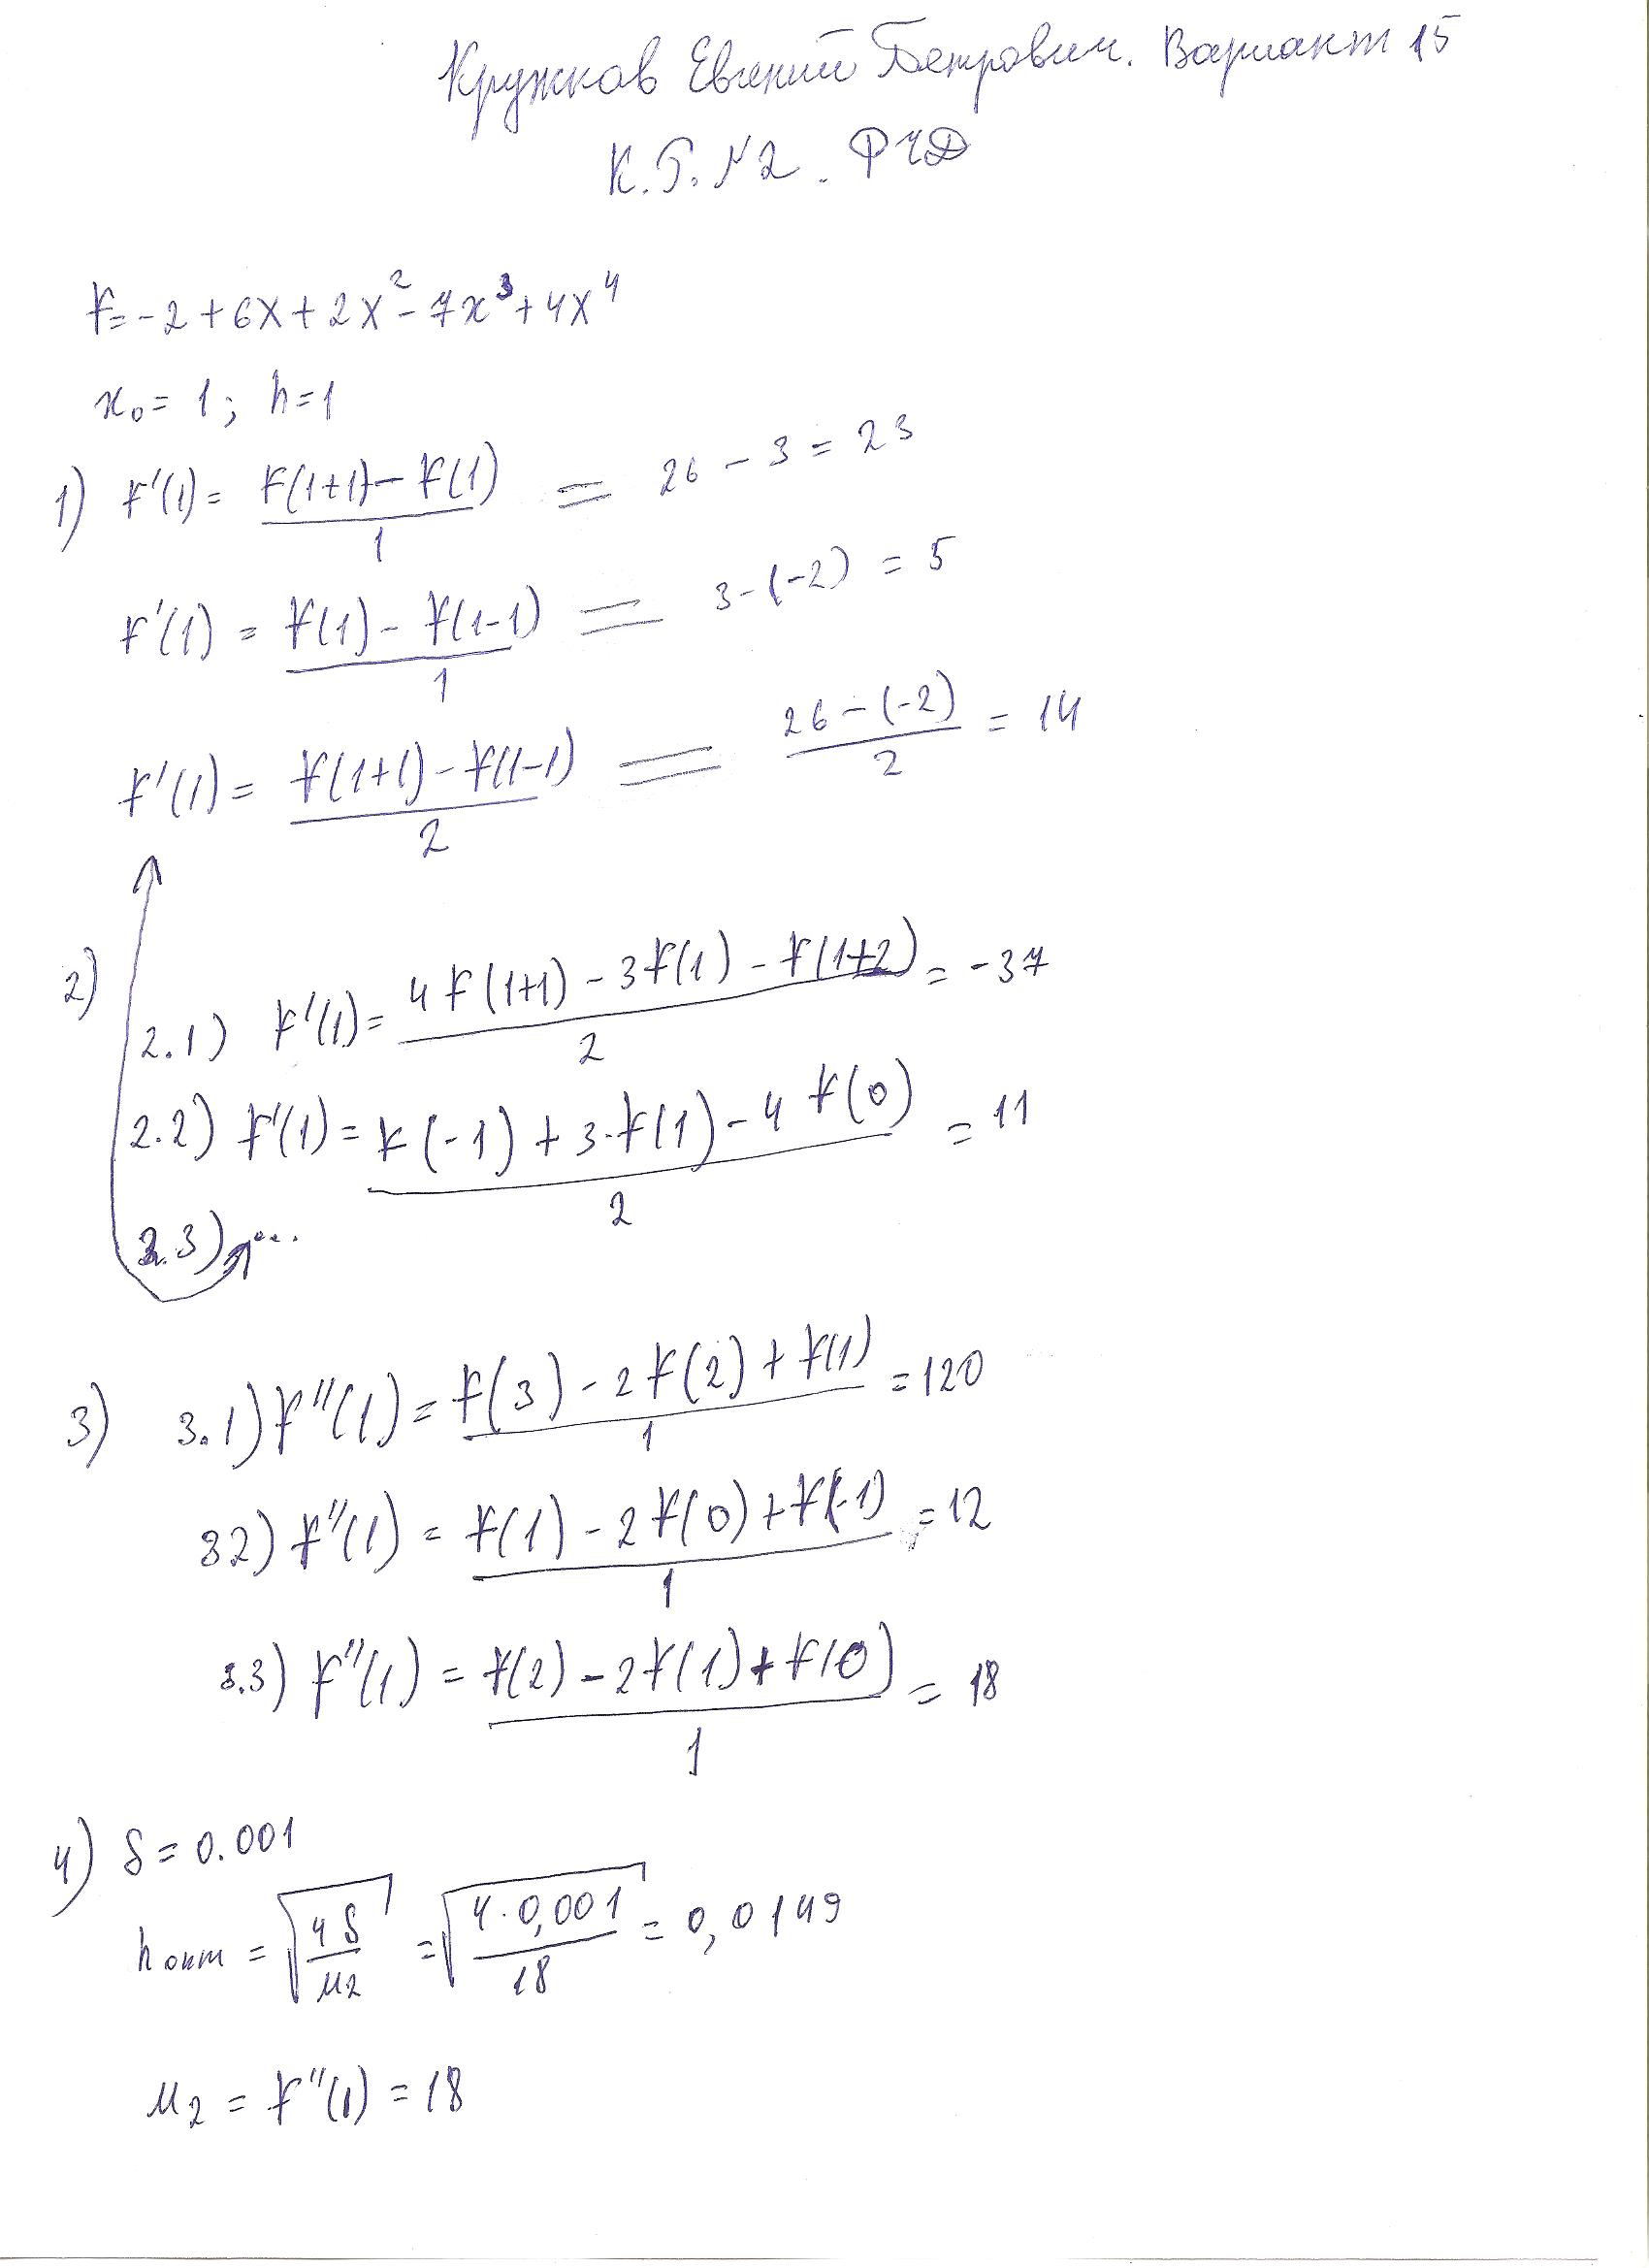 Кружков Евгений Петрович. Вариант 15
К.Р. №2. ФЧД
F = -2 + 6x + 2x² - 7x³ + 4x⁴
x₀ = 1; h = 1
1) F'(1) = (F(1+1) - F(1)) / 1 = 26 - 3 = 23
F'(1) = (F(1) - F(1-1)) / 1 = 3 - (-2) = 5
F'(1) = (F(1+1) - F(1-1)) / 2 = (26 - (-2)) / 2 = 14
2)
2.1) F'(1) = (4F(1+1) - 3F(1) - F(1+2)) / 2 = -37
2.2) F'(1) = (F(-1) + 3·F(1) - 4F(0)) / 2 = 11
2.3) ...
3) 3.1) F''(1) = (F(3) - 2F(2) + F(1)) / 1 = 120
32) F''(1) = (F(1) - 2F(0) + F(-1)) / 1 = 12
3.3) F''(1) = (F(2) - 2F(1) + F(0)) / 1 = 18
4) δ = 0.001
h опт = √(4δ / M₂) = √(4·0,001 / 18) = 0,0149
M₂ = F''(1) = 18